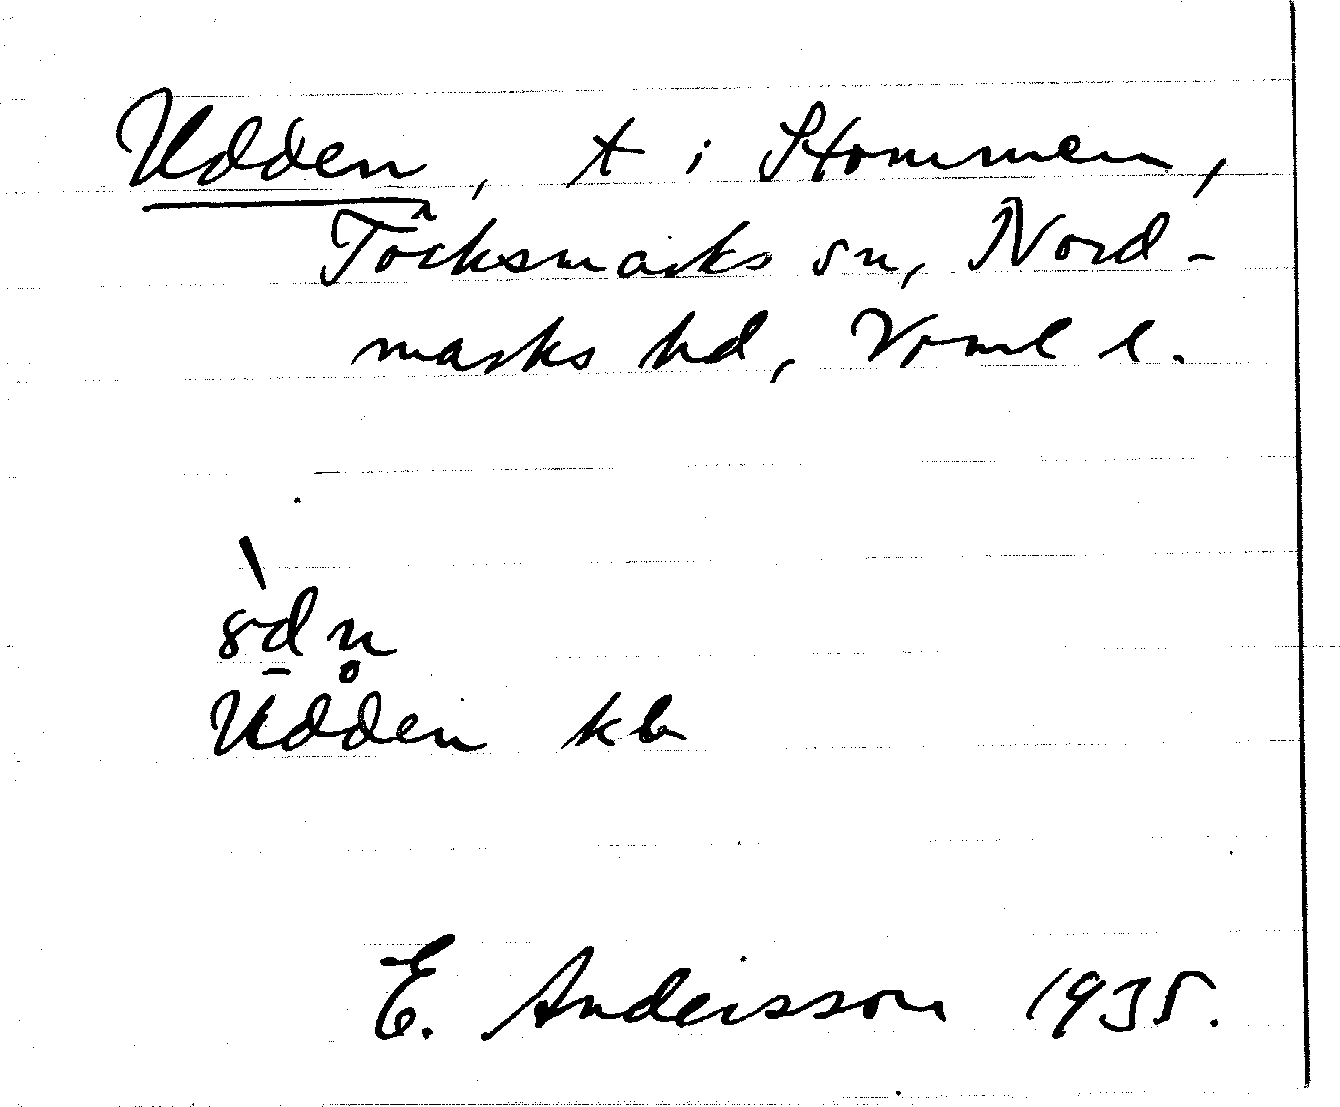 Udden, t i Stommen,
Töcksmarks sn, Nord-
marks hd, Vrml l.
Udden kb
E. Andersson 1935.